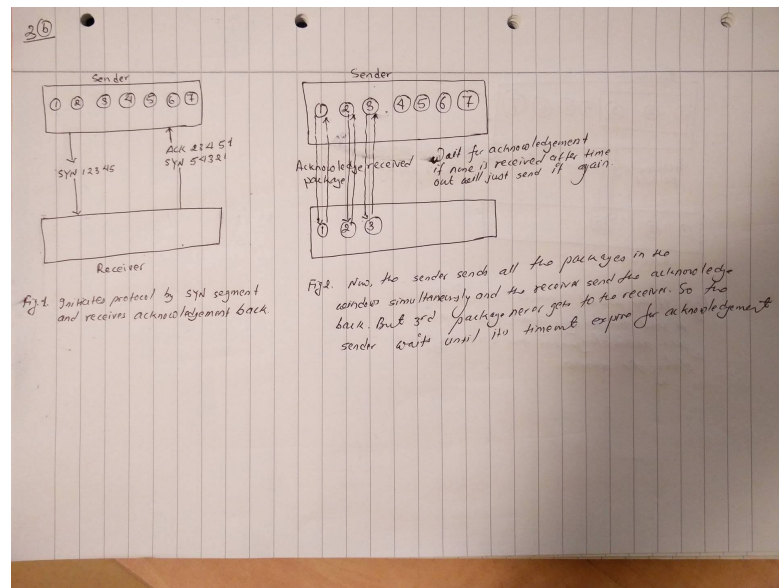 3(b)
Sender
1 2 3 4 5 6 7
SYN 12345
ACK 23451
SYN 54321
Receiver
Fig.1. Initiates protocol by SYN segment
and receives acknowledgement back.
Sender
1 2 3 4 5 6 7
Acknowledge received
package
Wait for acknowledgement
if none is received after time
out will just send it again.
1 2 3
Fig 2. Now, the sender sends all the packages in the
window simultaneously and the receiver send the acknowledge
back. But 3rd package never gets to the receiver. So the
sender waits until its timeout expire for acknowledgement